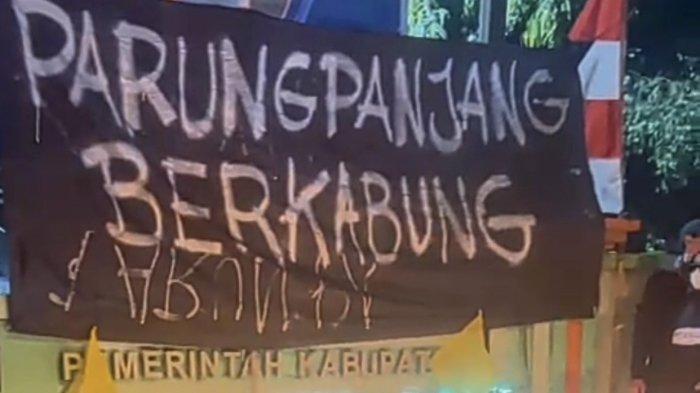 PARUNGPANJANG
BERKABUNG
PEMERINTAH KABUPAT